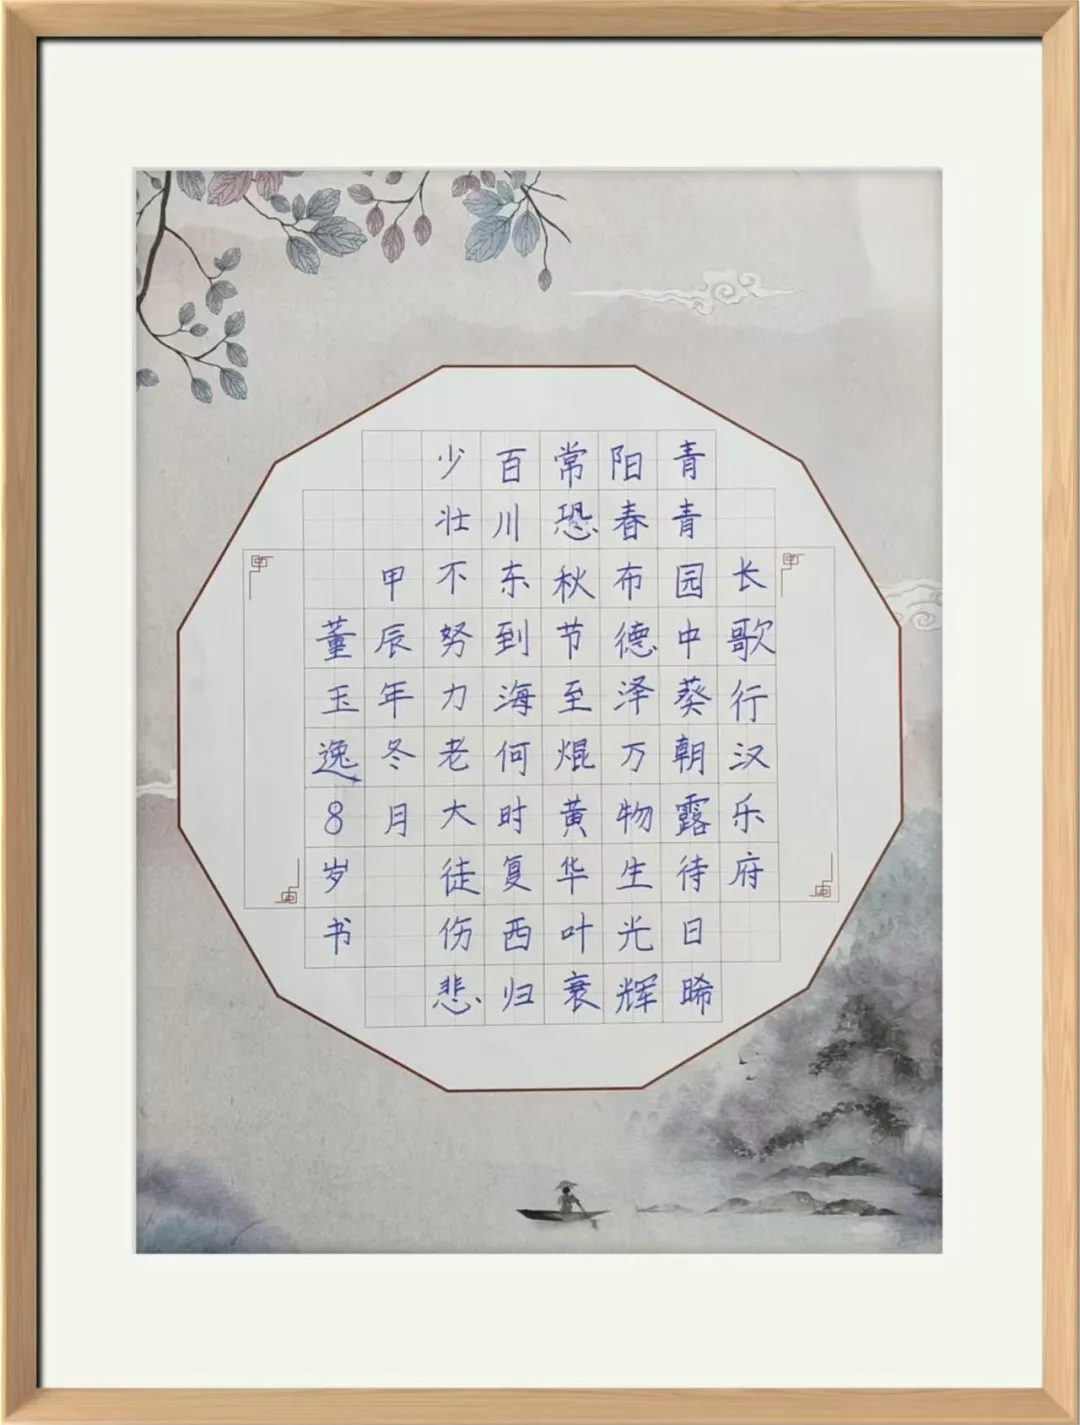 长歌行汉乐府
青青园中葵朝露待日晞
阳春布德泽万物生光辉
常恐秋节至焜黄华叶衰
百川东到海何时复西归
少壮不努力老大徒伤悲
甲辰年冬月
董玉逸8岁书